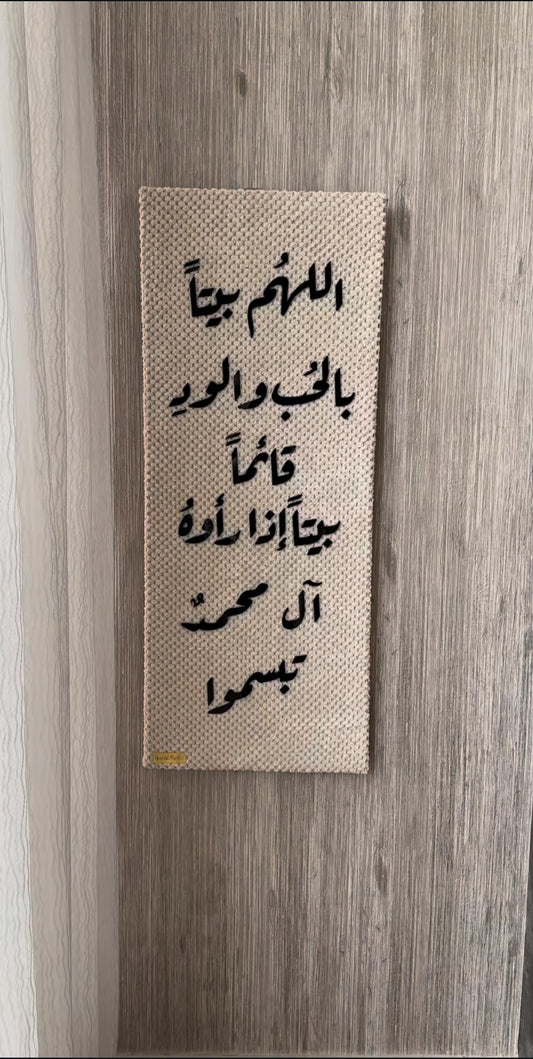 اللهُم بيتاً
بالحُبِ والودِ
قائماً
بيتاً إذا رأوهُ
آل محمدٌ
تبسموا